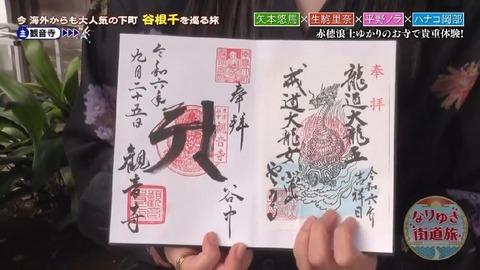 今 海外からも大人気の下町 谷根千を巡る旅
観音寺
矢本悠馬×生駒里奈×平野ノラ×ハナコ岡部
赤穂浪士ゆかりのお寺で貴重体験!
奉拝
谷中
令和六年
九月二十五日
観音寺
奉拝
龍道大龍王
戒道大龍女
令和六年
吉祥日
なりゆき
街道旅